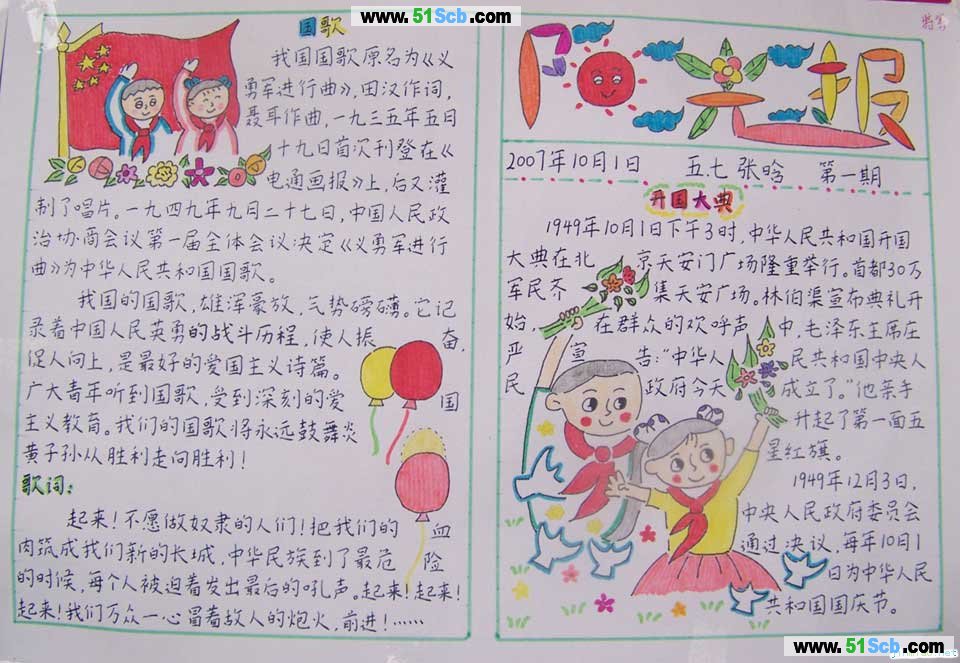 www.51Scb.com
国歌
我国国歌原名为《义
勇军进行曲》,田汉作词,
聂耳作曲,一九三五年五日
十九日首次刊登在《
电通画报》上,后又灌
制了唱片。一九四九年九月二十七日,中国人民政
治协商会议第一届全体会议决定《义勇军进行
曲》为中华人民共和国国歌。
我国的国歌,雄浑豪放,气势磅礴。它记
录着中国人民英勇的战斗历程,使人振奋,
促人向上,是最好的爱国主义诗篇。
广大青年听到国歌,受到深刻的爱国
主义教育。我们的国歌将永远鼓舞炎
黄子孙从胜利走向胜利!
歌词:
起来!不愿做奴隶的人们!把我们的血
肉筑成我们新的长城,中华民族到了最危险
的时候,每个人被迫着发出最后的吼声。起来!起来!
起来!我们万众一心冒着敌人的炮火,前进!……
阳光报
2007年10月1日 五.七 张晗 第一期
开国大典
1949年10月1日下午3时,中华人民共和国开国
大典在北京天安门广场隆重举行。首都30万
军民齐集天安广场。林伯渠宣布典礼开
始,在群众的欢呼声中,毛泽东主席庄
严宣告:“中华人民共和国中央人
民政府今天成立了。”他亲手
升起了第一面五
星红旗。
1949年12月3日,
中央人民政府委员会
通过决议,每年10月1
日为中华人民
共和国国庆节。
www.51Scb.com